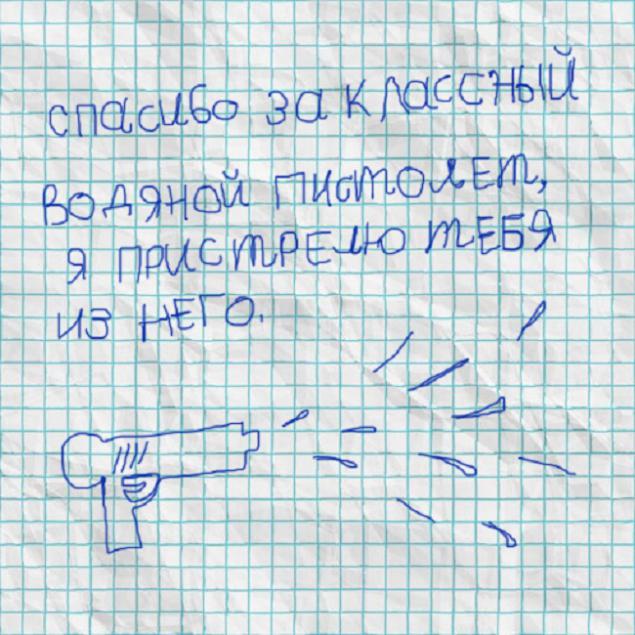 спасибо за классный
водяной пистолет,
я пристрелю тебя
из него.